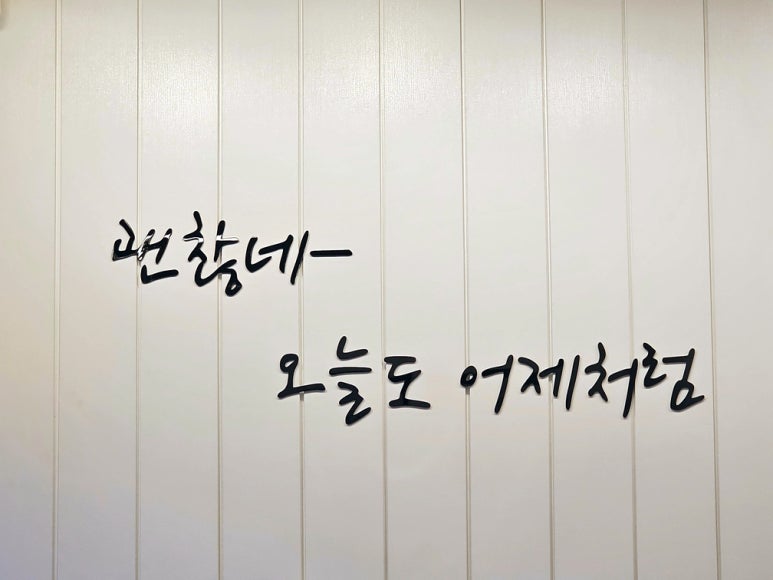 괜찮네-
오늘도 어제처럼